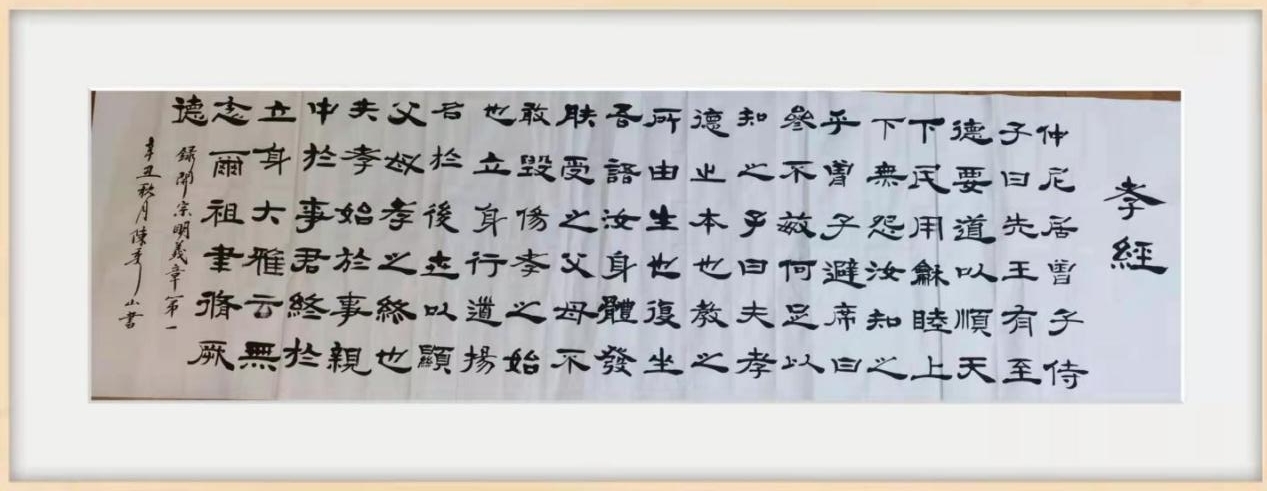 孝經
仲尼居曾子侍
子曰先王有至
德要道以順天
下民用龢睦上
下無怨汝知之
乎曾子避席曰
參不敏何足以
知之子曰夫孝
德之本也教之
所由生也復坐
吾語汝身體發
肤受之父母不
敢毀傷孝之始
也立身行道揚
名於後世以顯
父母孝之終也
夫孝始於事親
中於事君終於
立身大雅云無
念爾祖聿脩厥
德
錄開宗明義章第一
辛丑秋月陳山書